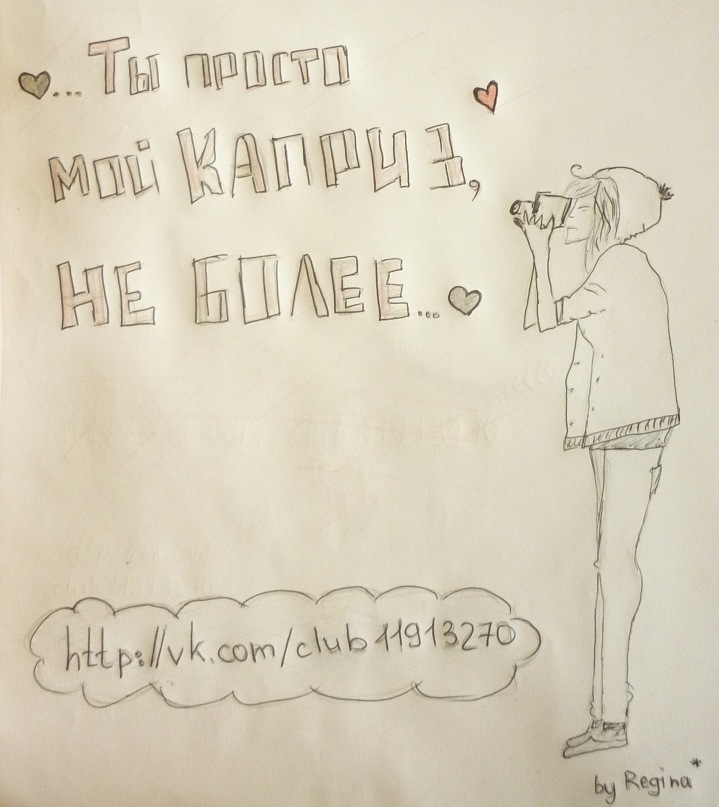 ...Ты просто
мой КАПРИЗ,
НЕ БОЛЕЕ...
http://vk.com/club11913270
by Regina*